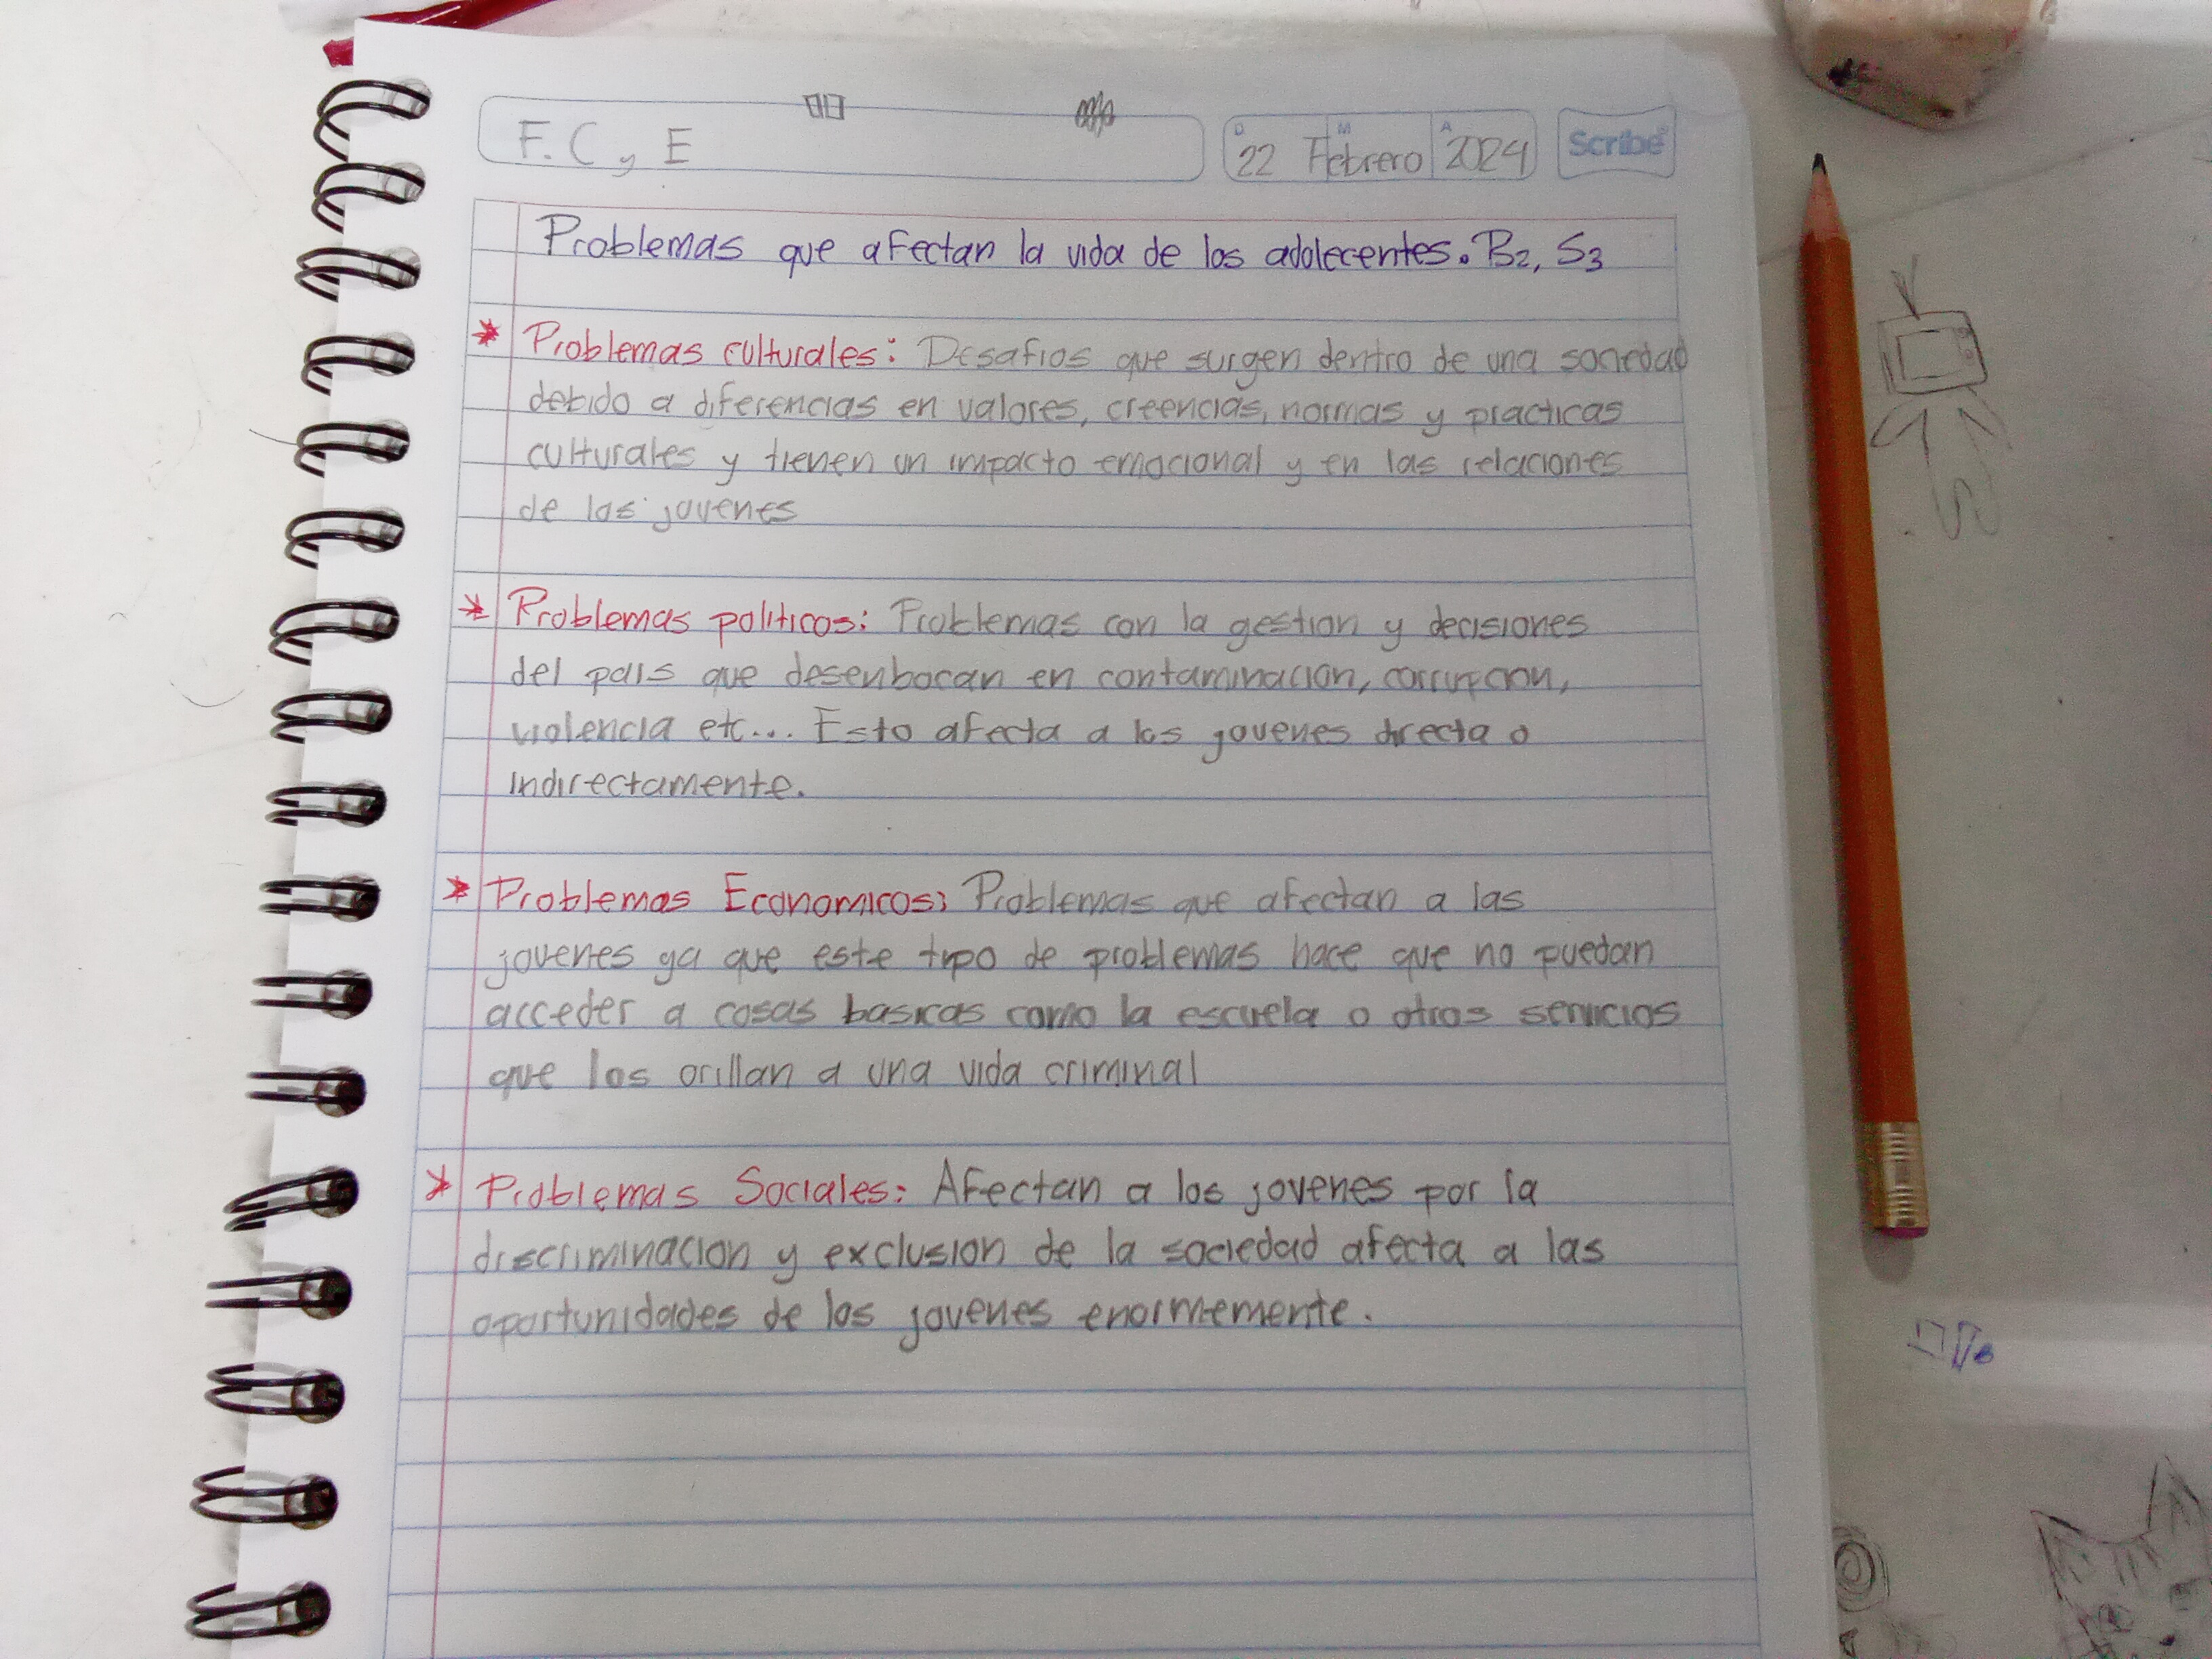 F. C y E
D M A
22 Febrero 2024
Scribe
Problemas que afectan la vida de los adolecentes. B2, S3
* Problemas culturales: Desafios que surgen dentro de una sociedad
debido a diferencias en valores, creencias, normas y practicas
culturales y tienen un impacto emocional y en las relaciones
de los jovenes
* Problemas politicos: Problemas con la gestion y decisiones
del pais que desenbocan en contaminacion, corrupcion,
violencia etc... Esto afecta a los jovenes directa o
indirectamente.
* Problemas Economicos: Problemas que afectan a las
jovenes ya que este tipo de problemas hace que no puedan
acceder a cosas basicas como la escuela o otros servicios
que los orillan a una vida criminal
* Problemas Sociales: Afectan a los jovenes por la
discriminacion y exclusion de la sociedad afecta a las
oportunidades de los jovenes enormemente.